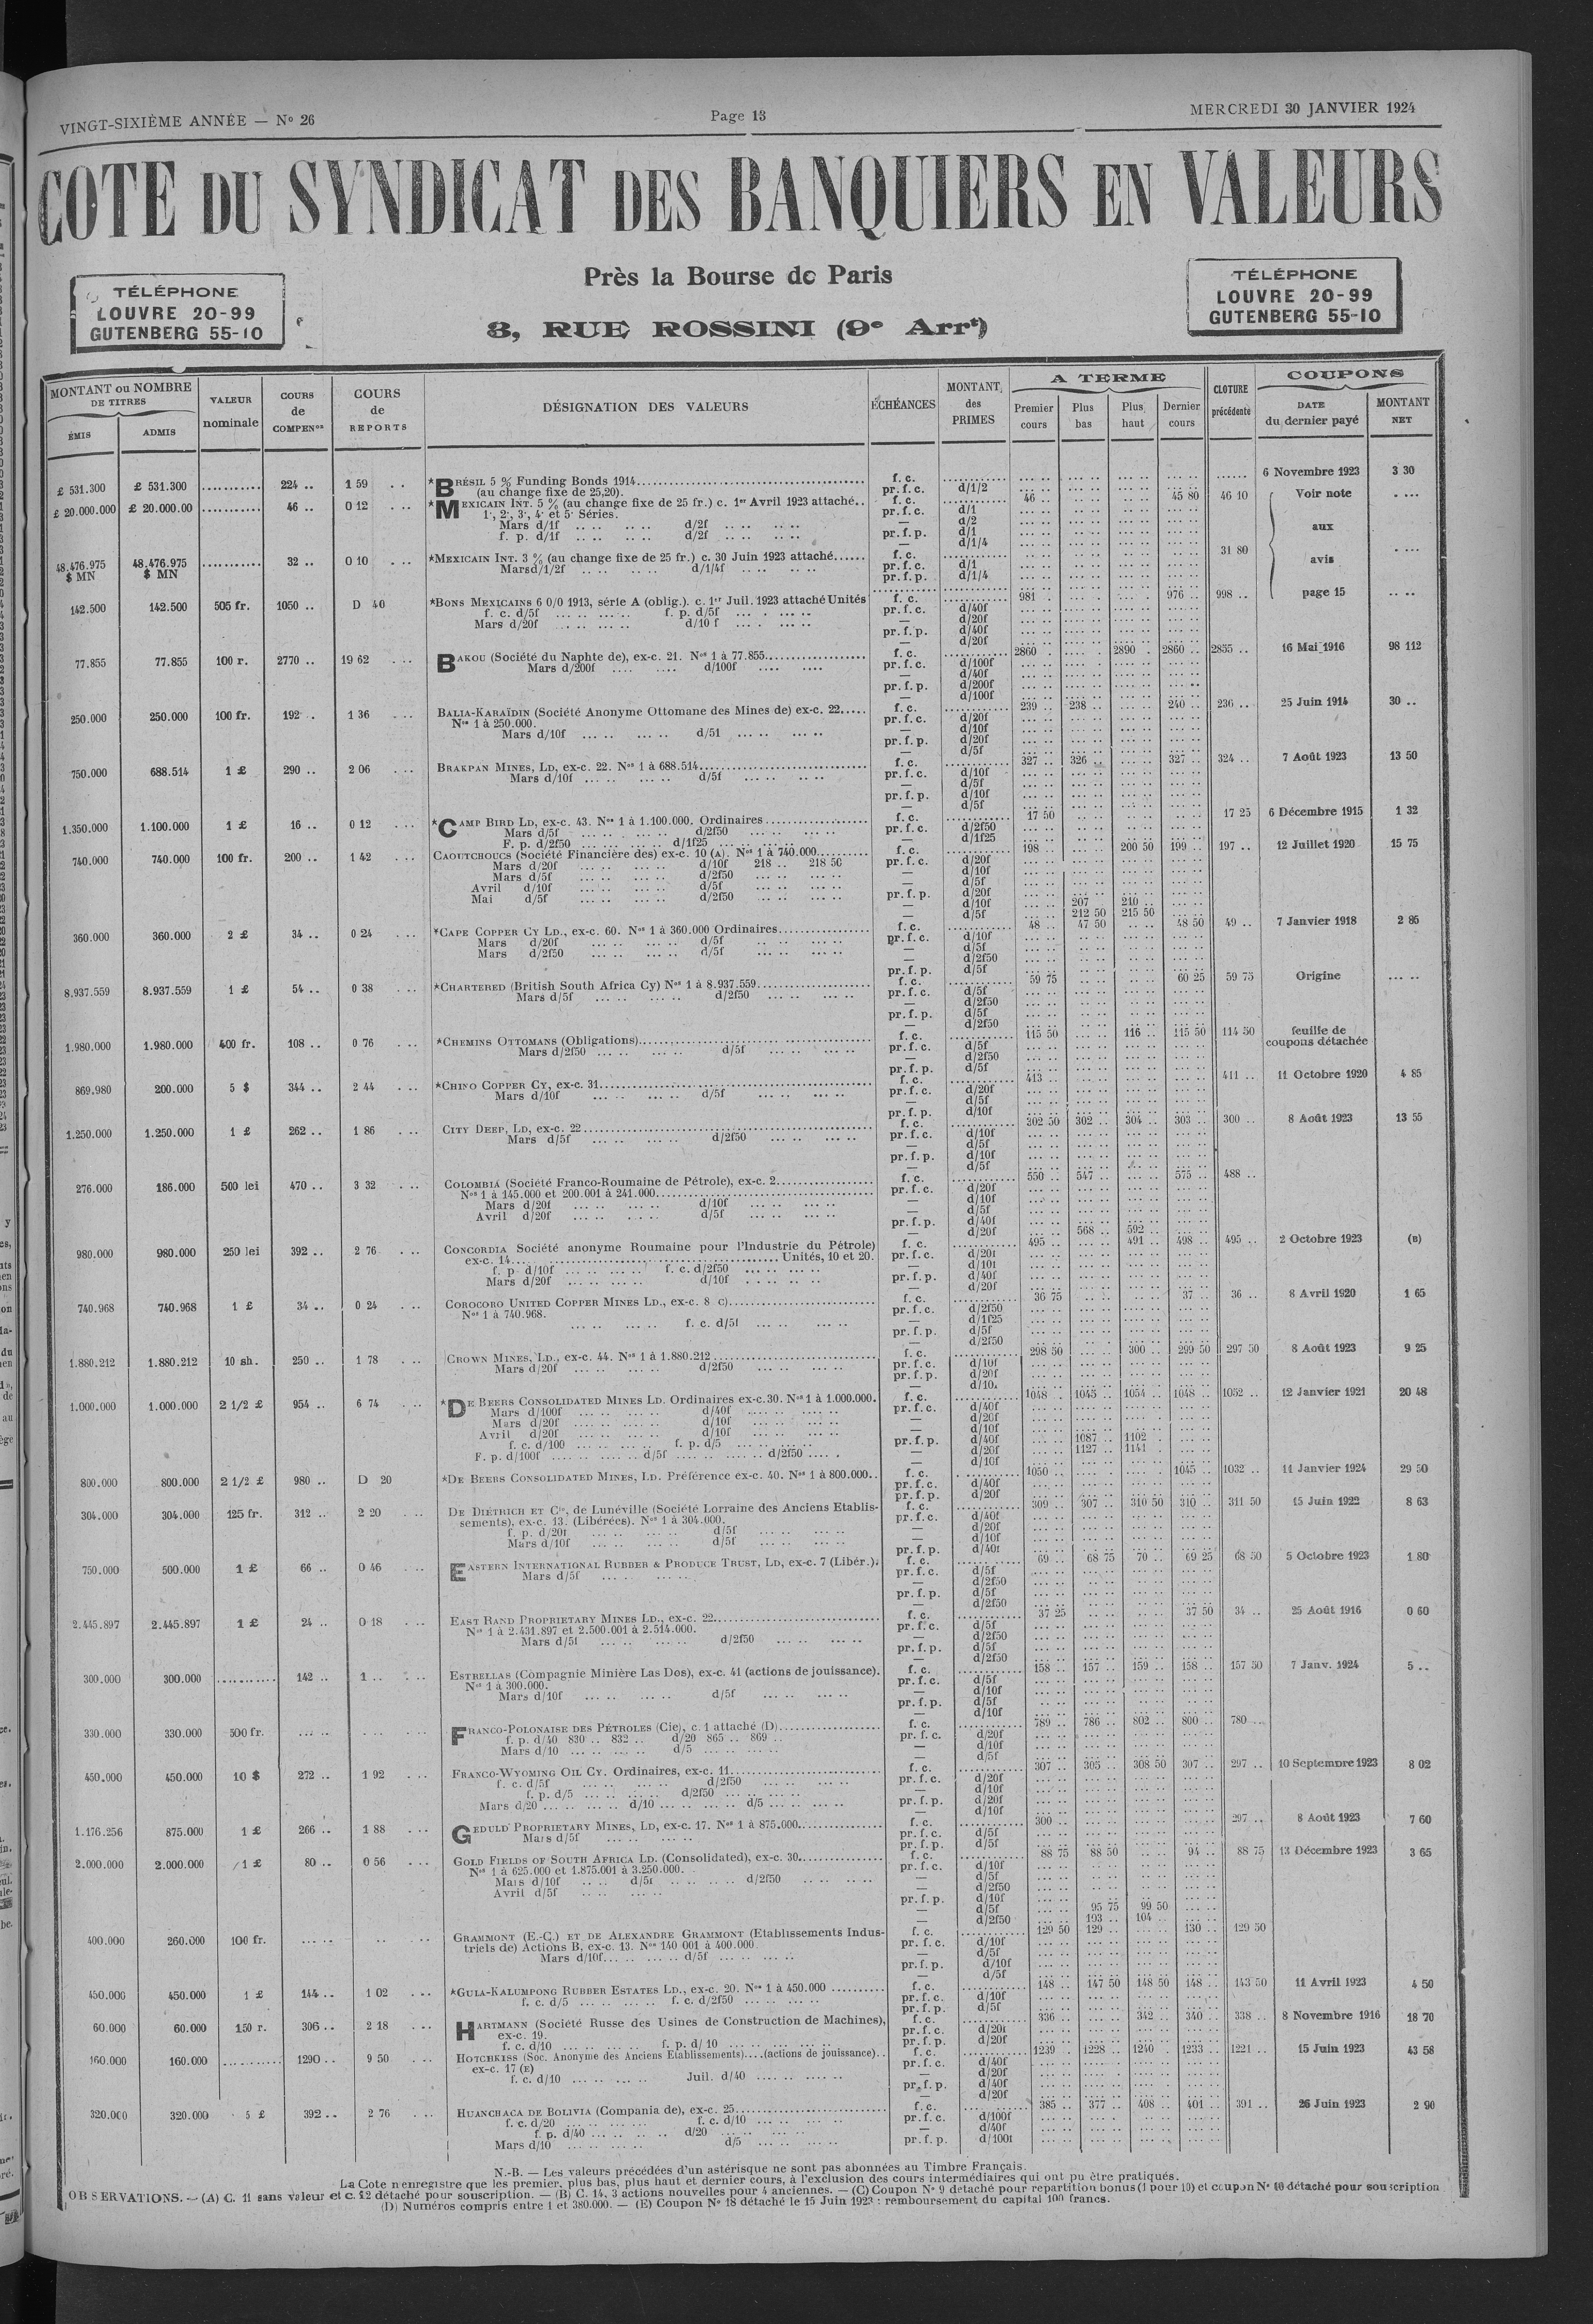 VINGT-SIXIÈME ANNÉE — No 26
Page 13
MERCREDI 30 JANVIER 1924
COTE DU SYNDICAT DES BANQUIERS EN VALEURS
Près la Bourse de Paris
3, RUE ROSSINI (9e Arrt)
TÉLÉPHONE
LOUVRE 20-99
GUTENBERG 55-10
TÉLÉPHONE
LOUVRE 20-99
GUTENBERG 55-10
MONTANT ou NOMBRE DE TITRES
ÉMIS ADMIS
VALEUR nominale
COURS de COMPENon
COURS de REPORTS
DÉSIGNATION DES VALEURS
ÉCHÉANCES
MONTANT des PRIMES
A TERME
Premier cours Plus bas Plus haut Dernier cours
CLOTURE précédente
COUPONS
DATE du dernier payé MONTANT NET
£ 531.300 £ 531.300 ........... 224 .. 1 59 .. *BRÉSIL 5 % Funding Bonds 1914 f. c. 6 Novembre 1923 3 30
(au change fixe de 25,20). pr. f. c. d/1/2
£ 20.000.000 £ 20.000.00 ........... 46 .. 0 12 ... *MEXICAIN INT. 5 % (au change fixe de 25 fr.) c. 1er Avril 1923 attaché.. f. c. 46 .. 45 80 46 10 Voir note
1·, 2·, 3·, 4· et 5· Séries. pr. f. c. d/1
Mars d/1f .. .. d/2f .. .. — d/2 aux
f. p. d/1f .. .. d/2f .. .. pr. f. p. d/1
— d/1/4
48.476.975 $ MN 48.476.975 $ MN ........... 32 .. 0 10 ... *MEXICAIN INT. 3 % (au change fixe de 25 fr.) c. 30 Juin 1923 attaché...... f. c. 31 80 avis
Mars d/1/2f .. .. d/1/4f .. .. pr. f. c. d/1
pr. f. p. d/1/4
142.500 142.500 505 fr. 1050 .. D 40 *BONS MEXICAINS 6 0/0 1913, série A (oblig.). c. 1er Juil. 1923 attaché Unités f. c. 981 . 976 .. 998 .. page 15
f. c. d/5f .. .. f. p. d/5f .. .. pr. f. c. d/40f
Mars d/20f .. .. d/10 f .. .. — d/20f
pr. f. p. d/40f
— d/20f
77.855 77.855 100 r. 2770 .. 19 62 ... BAKOU (Société du Naphte de), ex-c. 21. Nos 1 à 77.855 f. c. 2860 .. 2890 . 2860 .. 2855 .. 16 Mai 1916 98 112
Mars d/200f .... .... d/100f .... .... pr. f. c. d/100f
— d/40f
pr. f. p. d/200f
— d/100f
250.000 250.000 100 fr. 192 .. 1 36 ... BALIA-KARAÏDIN (Société Anonyme Ottomane des Mines de) ex-c. 22..... f. c. 239 .. 238 .. 240 .. 236 .. 25 Juin 1914 30 ..
Nos 1 à 250.000. pr. f. c. d/20f
Mars d/10f .. .. d/51 .. .. — d/10f
pr. f. p. d/20f
— d/5f
750.000 688.514 1 £ 290 .. 2 06 ... BRAKPAN MINES, LD, ex-c. 22. Nos 1 à 688.514 f. c. 327 .. 326 .. 327 .. 324 .. 7 Août 1923 13 50
Mars d/10f .. .. d/5f .. .. pr. f. c. d/10f
— d/5f
pr. f. p. d/10f
— d/5f
1.350.000 1.100.000 1 £ 16 .. 0 12 ... *CAMP BIRD LD, ex-c. 43. Nos 1 à 1.100.000. Ordinaires f. c. 17 50 17 25 6 Décembre 1915 1 32
Mars d/5f .. .. d/2f50 .. .. pr. f. c. d/2f50
F. p. d/2f50 .. .. d/1f25 .. .. — d/1f25
740.000 740.000 100 fr. 200 .. 1 42 ... CAOUTCHOUCS (Société Financière des) ex-c. 10 (A). Nos 1 à 740.000 f. c. 198 .. 200 50 199 .. 197 .. 12 Juillet 1920 15 75
Mars d/20f .. .. d/10f 218 .. 218 50 pr. f. c. d/20f
Mars d/5f .. .. d/2f50 .. .. — d/10f
Avril d/10f .. .. d/5f .. .. — d/5f
Mai d/5f .. .. d/2f50 .. .. pr. f. p. d/20f
— d/10f 207 210 ..
— d/5f 212 50 215 50
360.000 360.000 2 £ 34 .. 0 24 ... *CAPE COPPER CY LD., ex-c. 60. Nos 1 à 360.000 Ordinaires f. c. 48 .. 47 50 48 50 49 .. 7 Janvier 1918 2 86
Mars d/20f .. .. d/5f .. .. pr. f. c. d/10f
Mars d/2f50 .. .. d/5f .. .. — d/5f
— d/2f50
pr. f. p. d/5f
8.937.559 8.937.559 1 £ 54 .. 0 38 ... *CHARTERED (British South Africa Cy) Nos 1 à 8.937.559 f. c. 59 75 60 25 59 75 Origine
Mars d/5f .. .. d/2f50 .. .. pr. f. c. d/5f
— d/2f50
pr. f. p. d/5f
— d/2f50
1.980.000 1.980.000 400 fr. 108 .. 0 76 ... *CHEMINS OTTOMANS (Obligations) f. c. 115 50 116 .. 115 50 114 50 feuille de coupons détachée
Mars d/2f50 .. .. d/5f .. .. pr. f. c. d/5f
— d/2f50
pr. f. p. d/5f
869.980 200.000 5 $ 344 .. 2 44 ... *CHINO COPPER CY, ex-c. 31 f. c. 413 .. 411 .. 11 Octobre 1920 4 85
Mars d/10f .. .. d/5f .. .. pr. f. c. d/20f
— d/5f
pr. f. p. d/10f
1.250.000 1.250.000 1 £ 262 .. 1 86 ... CITY DEEP, LD, ex-c. 22 f. c. 302 50 302 .. 304 .. 303 .. 300 .. 8 Août 1923 13 55
Mars d/5f .. .. d/2f50 .. .. pr. f. c. d/10f
— d/5f
pr. f. p. d/10f
— d/5f
276.000 186.000 500 lei 470 .. 3 32 ... COLOMBIA (Société Franco-Roumaine de Pétrole), ex-c. 2 f. c. 550 .. 547 .. 575 .. 488 ..
Nos 1 à 145.000 et 200.001 à 241.000 pr. f. c. d/20f
Mars d/20f .. .. d/10f .. .. — d/10f
Avril d/20f .. .. d/5f .. .. — d/5f
pr. f. p. d/40f
— d/20f 568 .. 592 ..
980.000 980.000 250 lei 392 .. 2 76 ... CONCORDIA Société anonyme Roumaine pour l'Industrie du Pétrole) f. c. 495 .. 491 .. 498 .. 495 .. 2 Octobre 1923 (B)
ex-c. 14 Unités, 10 et 20. pr. f. c. d/20f
f. p. d/10f .. .. f. c. d/2f50 .. .. — d/10f
Mars d/20f .. .. d/10f .. .. pr. f. p. d/40f
— d/20f
740.968 740.968 1 £ 34 .. 0 24 ... COROCORO UNITED COPPER MINES LD., ex-c. 8 C) f. c. 36 75 37 .. 36 .. 8 Avril 1920 1 65
Nos 1 à 740.968. pr. f. c. d/2f50
f. c. d/5f .. .. — d/1f25
pr. f. p. d/5f
— d/2f50
1.880.212 1.880.212 10 sh. 250 .. 1 78 ... CROWN MINES, LD., ex-c. 44. Nos 1 à 1.880.212 f. c. 298 50 300 .. 299 50 297 50 8 Août 1923 9 25
Mars d/20f .. .. d/2f50 .. .. pr. f. c. d/10f
pr. f. p. d/20f
— d/10f
1.000.000 1.000.000 2 1/2 £ 954 .. 6 74 ... *DE BEERS CONSOLIDATED MINES LD. Ordinaires ex-c.30. Nos 1 à 1.000.000. f. c. 1048 .. 1045 .. 1054 .. 1048 .. 1052 .. 12 Janvier 1921 20 48
Mars d/100f .. .. d/40f .. .. pr. f. c. d/40f
Mars d/20f .. .. d/10f .. .. — d/20f
Avril d/20f .. .. d/10f .. .. — d/10f
f. c. d/100 .. .. f. p. d/5 .. .. pr. f. p. d/40f 1087 .. 1102 ..
F. p. d/100f .. .. d/5f .. .. d/2f50 .. .. — d/20f 1127 .. 1141 .
— d/10f
800.000 800.000 2 1/2 £ 980 .. D 20 *DE BEERS CONSOLIDATED MINES, LD. Préférence ex-c. 40. Nos 1 à 800.000.. f. c. 1050 .. 1045 .. 1032 .. 11 Janvier 1924 29 50
pr. f. c. d/40f
pr. f. p. d/20f
304.000 304.000 125 fr. 312 .. 2 20 ... DE DIÉTRICH ET Cie, de Lunéville (Société Lorraine des Anciens Etablis- f. c. 309 .. 307 .. 310 50 310 .. 311 50 15 Juin 1922 8 63
sements), ex-c. 13. (Libérées). Nos 1 à 304.000. pr. f. c. d/40f
f. p. d/20f .. .. d/5f .. .. — d/20f
Mars d/10f .. .. d/5f .. .. — d/10f
pr. f. p. d/40f
750.000 500.000 1 £ 66 .. 0 46 ... EASTERN INTERNATIONAL RUBBER & PRODUCE TRUST, LD, ex-c. 7 (Libér.). f. c. 69 .. 68 75 70 .. 69 25 68 50 5 Octobre 1923 1 80
Mars d/5f .. .. pr. f. c. d/5f
— d/2f50
pr. f. p. d/5f
— d/2f50
2.445.897 2.445.897 1 £ 24 .. 0 18 ... EAST RAND PROPRIETARY MINES LD., ex-c. 22 f. c. 37 25 37 50 34 .. 25 Août 1916 0 60
Nos 1 à 2.431.897 et 2.500.001 à 2.514.000. pr. f. c. d/5f
Mars d/5f .. .. d/2f50 .. .. — d/2f50
pr. f. p. d/5f
— d/2f50
300.000 300.000 ........... 142 .. 1 .. ... ESTRELLAS (Compagnie Minière Las Dos), ex-c. 41 (actions de jouissance). f. c. 158 .. 157 .. 159 .. 158 .. 157 50 7 Janv. 1924 5 ..
Nos 1 à 300.000. pr. f. c. d/5f
Mars d/10f .. .. d/5f .. .. — d/10f
pr. f. p. d/5f
— d/10f
330.000 330.000 500 fr. FRANCO-POLONAISE DES PÉTROLES (Cie), c. 1 attaché (D) f. c. 789 .. 786 .. 802 .. 800 .. 780 ...
f. p. d/40 830 .. 832 .. d/20 865 .. 869 .. pr. f. c. d/20f
Mars d/10 .. .. d/5 .. .. — d/10f
— d/5f
450.000 450.000 10 $ 272 .. 1 92 ... FRANCO-WYOMING OIL CY. Ordinaires, ex-c. 11 f. c. 307 .. 305 .. 308 50 307 .. 297 .. 10 Septembre 1923 8 02
f. c. d/5f .. .. d/2f50 .. .. pr. f. c. d/20f
f. p. d/5 .. .. d/2f50 .. .. — d/10f
Mars d/20 .. .. d/10 .. .. d/5 .. .. pr. f. p. d/20f
— d/10f
1.176.256 875.000 1 £ 266 .. 1 88 ... GEDULD PROPRIETARY MINES, LD, ex-c. 17. Nos 1 à 875.000 f. c. 300 .. 297 .. 8 Août 1923 7 60
Mars d/5f .. .. pr. f. c. d/5f
pr. f. p. d/5f
2.000.000 2.000.000 1 £ 80 .. 0 56 ... GOLD FIELDS OF SOUTH AFRICA LD. (Consolidated), ex-c. 30 f. c. 88 75 88 50 94 .. 88 75 13 Décembre 1923 3 65
Nos 1 à 625.000 et 1.875.001 à 3.250.000. pr. f. c. d/10f
Mars d/10f .. .. d/5f .. .. d/2f50 .. .. — d/5f
Avril d/5f .. .. — d/2f50
pr. f. p. d/10f
— d/5f 95 75 99 50
— d/2f50 103 .. 104 ..
400.000 260.000 100 fr. GRAMMONT (E.-C.) ET DE ALEXANDRE GRAMMONT (Etablissements Indus- f. c. 129 50 129 .. 130 .. 129 50
triels de) Actions B, ex-c. 13. Nos 140 001 à 400.000. pr. f. c. d/10f
Mars d/10f .. .. d/5f .. .. — d/5f
pr. f. p. d/10f
— d/5f
450.000 450.000 1 £ 144 .. 1 02 ... *GULA-KALUMPONG RUBBER ESTATES LD., ex-c. 20. Nos 1 à 450.000 f. c. 148 .. 147 50 148 50 148 .. 143 50 11 Avril 1923 4 50
f. c. d/5 .. .. f. c. d/2f50 .. .. pr. f. c. d/10f
pr. f. p. d/5f
60.000 60.000 150 r. 306 .. 2 18 ... HARTMANN (Société Russe des Usines de Construction de Machines), f. c. 336 .. 342 .. 340 .. 338 .. 8 Novembre 1916 18 70
ex-c. 19. pr. f. c. d/20f
f. c. d/10 .. .. f. p. d/ 10 .. .. pr. f. p. d/20f
160.000 160.000 .......... 1290 .. 9 50 ... HOTCHKISS (Soc. Anonyme des Anciens Etablissements)....(actions de jouissance).. f. c. 1239 .. 1228 .. 1240 .. 1233 .. 1221 .. 15 Juin 1923 43 58
ex-c. 17 (E) pr. f. c. d/40f
f. c. d/10 .. .. Juil. d/40 .. .. — d/20f
pr. f. p. d/40f
— d/20f
320.000 320.000 5 £ 392 .. 2 76 ... HUANCHACA DE BOLIVIA (Compania de), ex-c. 25 f. c. 385 .. 377 .. 408 .. 401 .. 391 .. 26 Juin 1923 2 90
f. c. d/20 .. .. f. c. d/10 .. .. pr. f. c. d/100f
f. p. d/40 .. .. d/20 .. .. — d/40f
Mars d/10 .. .. d/5 .. .. pr. f. p. d/100f
N.-B. — Les valeurs précédées d'un astérisque ne sont pas abonnées au Timbre Français.
La Cote n'enregistre que les premier, plus bas, plus haut et dernier cours, à l'exclusion des cours intermédiaires qui ont pu être pratiqués.
OBSERVATIONS. — (A) C. 11 sans valeur et c. 12 détaché pour souscription. — (B) C. 14, 3 actions nouvelles pour 4 anciennes. — (C) Coupon No 9 detaché pour repartition bonus (1 pour 10) et coupon No 10 détaché pour souscription
(D) Numéros compris entre 1 et 380.000. — (E) Coupon No 18 détaché le 15 Juin 1923 : remboursement du capital 100 francs.